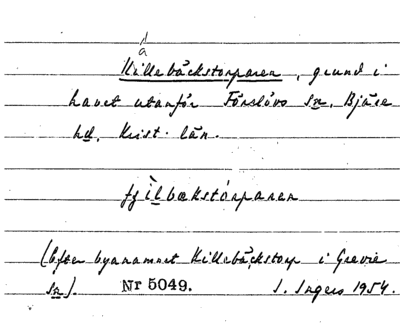 å
Killebäckstorparen, grund i
havet utanför Förslövs sn, Bjäre
hd, Krist. län.
(Efter bynamnet Killebäckstorp i Grevie
sn). Nr 5049. I. Ingers 1954.